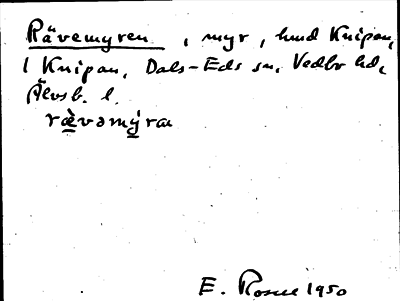 Rävemyren, myr, hmd Knipan,
1 Knipan, Dals-Eds sn, Vedbo hd,
Älvsb. l.
rævəmýra
E. Rosell 1950